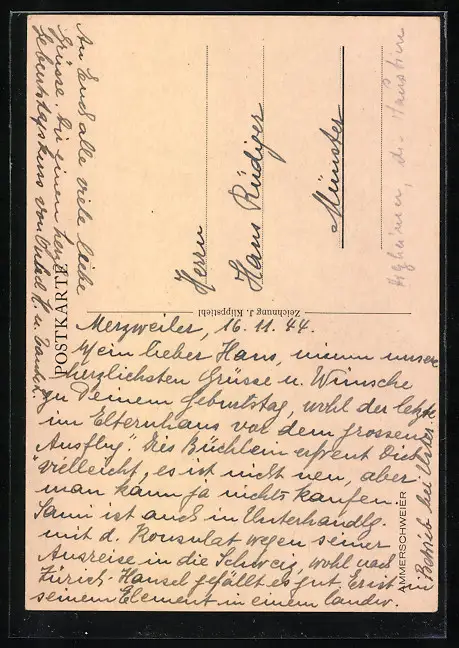 Merzweiler, 16.11.44.
Mein lieber Hans, nimm unsere
herzlichsten Grüsse u. Wünsche
zu Deinem Geburtstag, wohl der letzte
im Elternhaus vor dem grossen
"Ausflug". Dies Büchlein erfreut Dich
vielleicht, es ist nicht neu, aber
man kann ja nichts kaufen.
ist auch in Unterhandlg.
mit d. Konsulat wegen seiner
Ausreise in die Schweiz, wohl nach
Zürich. Hansel gefällt es gut. Er ist in
seinem Element in einem landw.
Betrieb bei
An Euch alle viele liebe
Grüsse. Dir einen herz.
Geburtstagskuss von Onkel H. u. Tante
POSTKARTE
Zeichnung J. Klippstiehl
Herrn
Hans Rüdiger
Münster
AMMERSCHWEIER